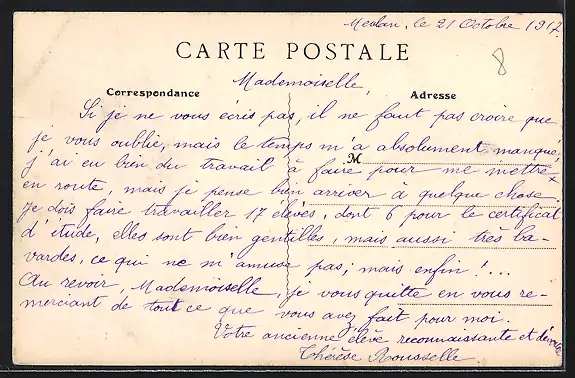 Meulan, le 21 Octobre 1917.
CARTE POSTALE
8
Mademoiselle,
Correspondance
Adresse
Si je ne vous écris pas, il ne faut pas croire que
je vous oublie, mais le temps m'a absolument manqué,
M
j'ai eu bien du travail à faire pour me mettre
en route, mais je pense bien arriver à quelque chose.
Je dois faire travailler 17 élèves, dont 6 pour le certificat
d'étude, elles sont bien gentilles, mais aussi très ba-
vardes, ce qui ne m'amuse pas; mais enfin !...
Au revoir, Mademoiselle, je vous quitte en vous re-
merciant de tout ce que vous avez fait pour moi.
Votre ancienne élève reconnaissante et dévouée
Thérèse Rousselle